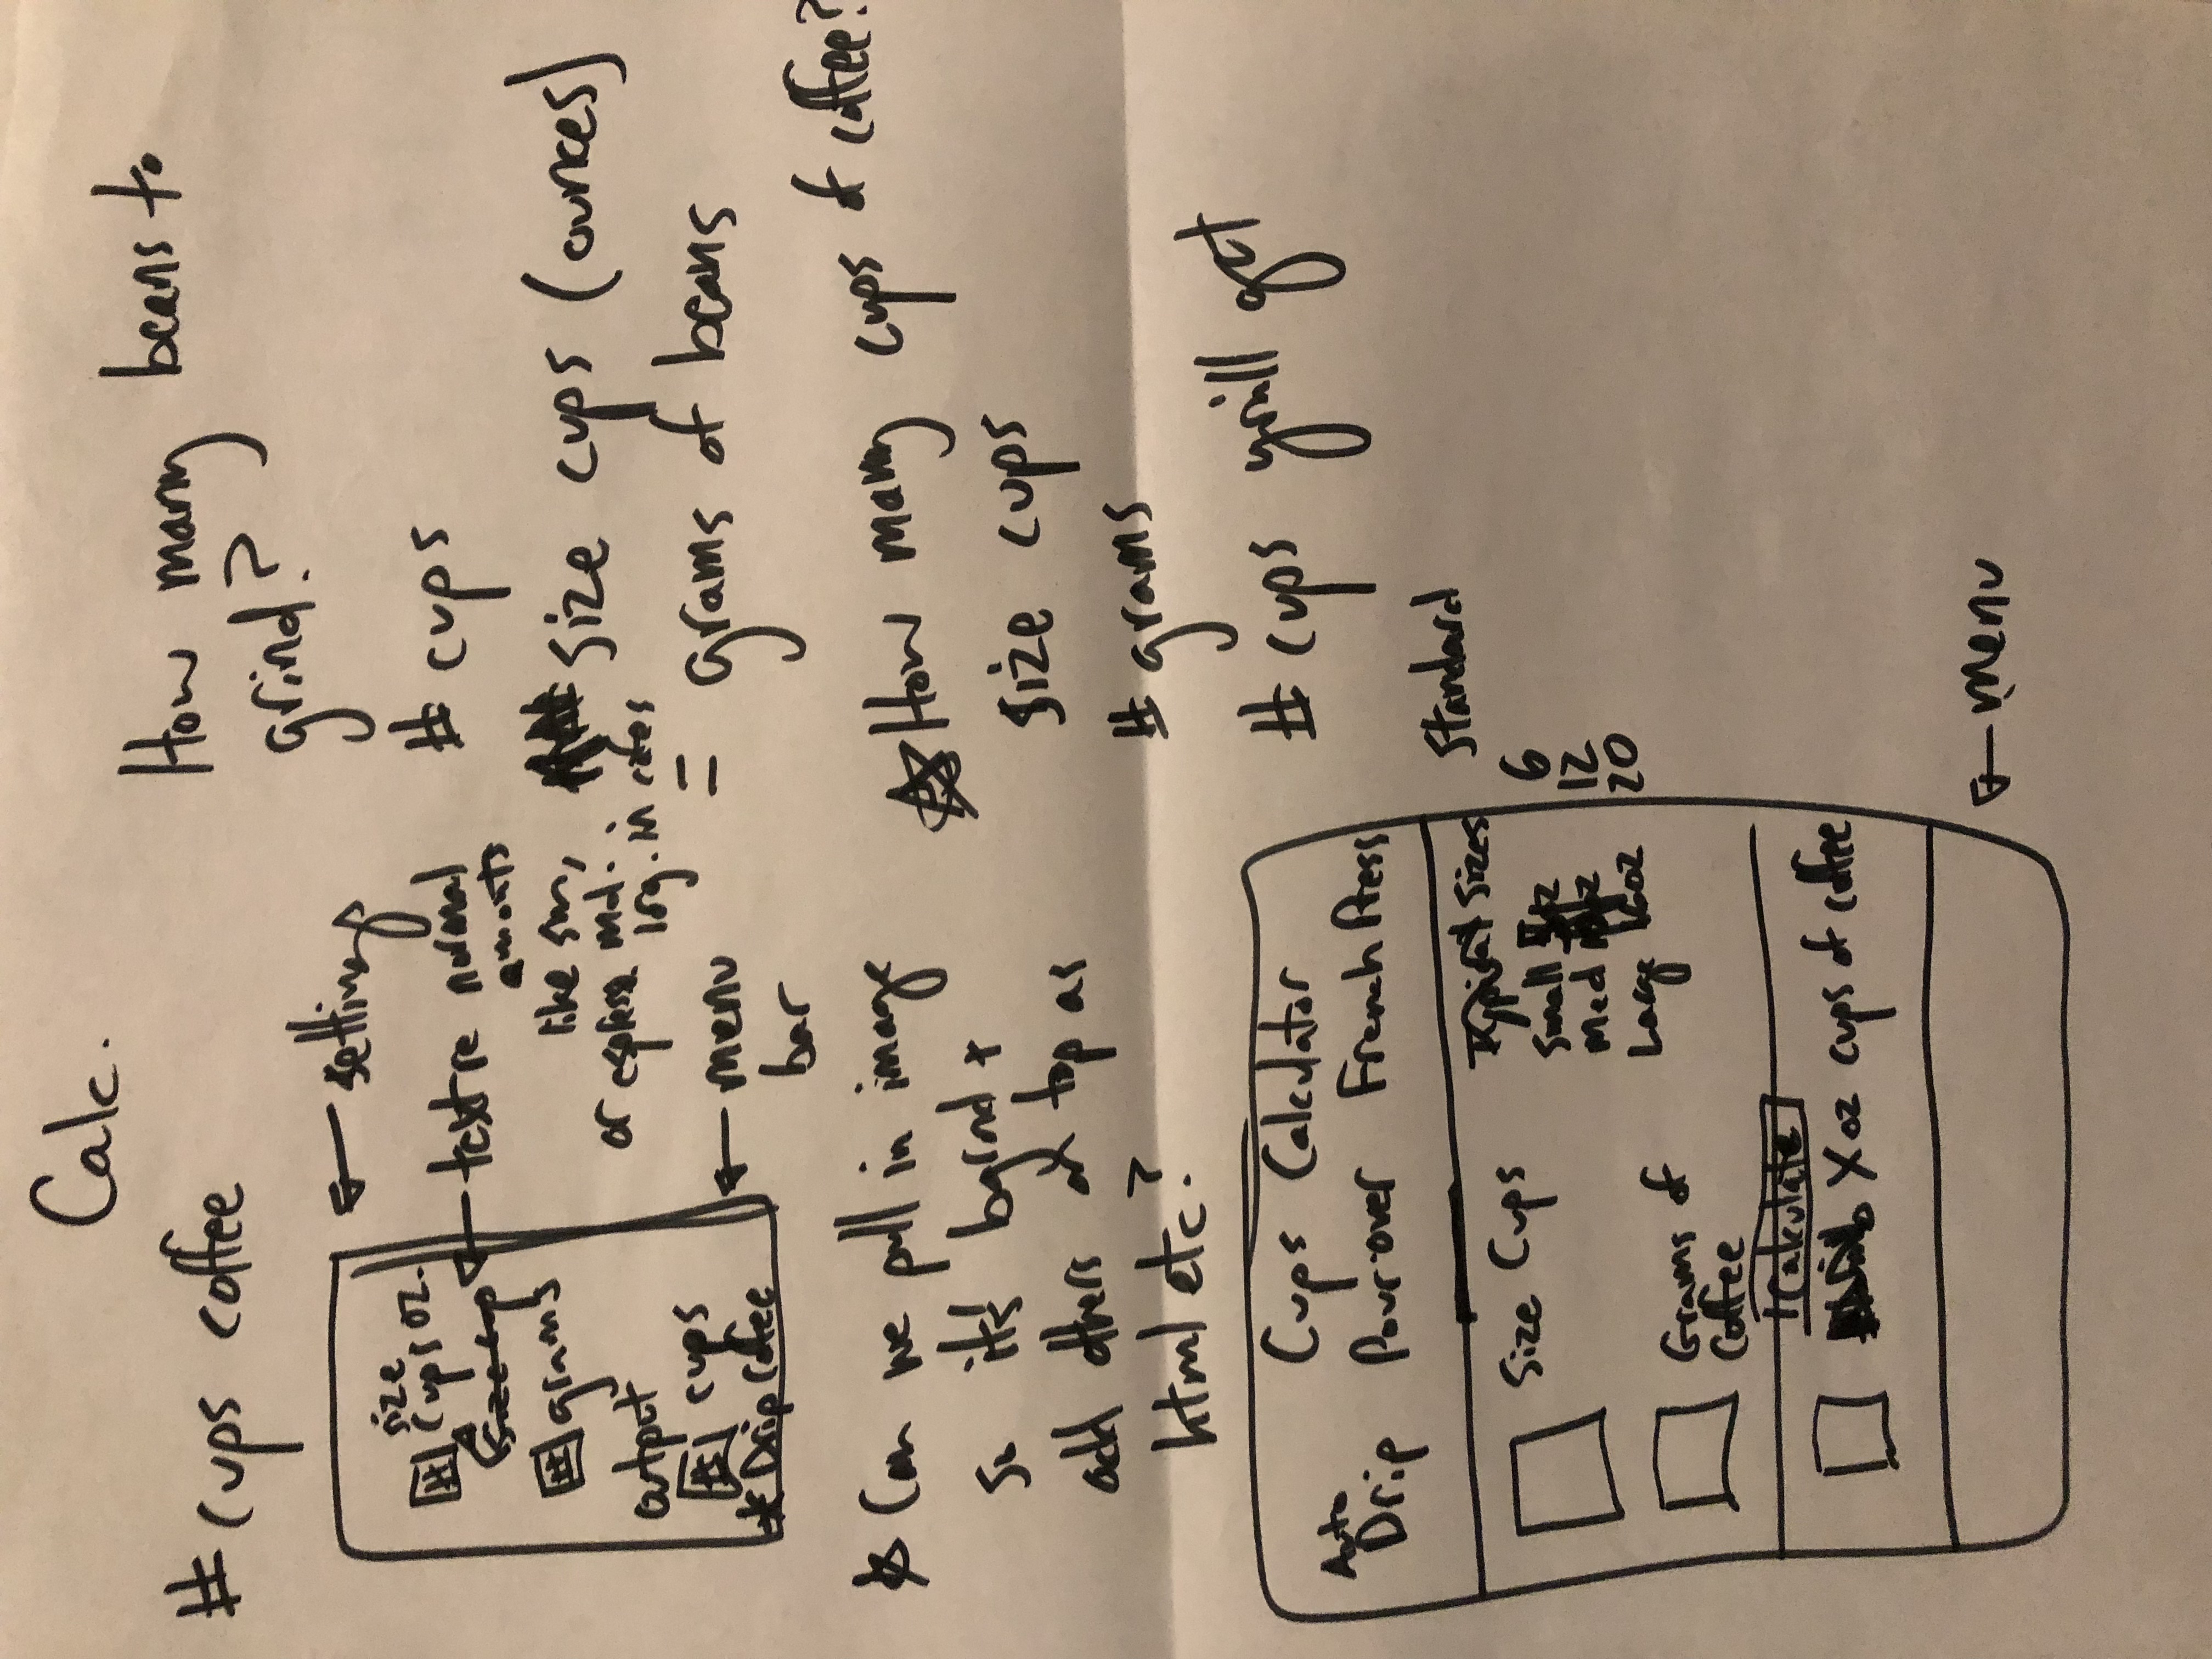 Calc.
# cups coffee
How many beans to
grind?
# cups
size cups (ounces)
= grams of beans
← setting
← text re normal
amounts
like sm,
or espresso md.
lrg. in cafes
← menu
bar
size
# cups oz.
# grams
output
# cups
* Drip coffee
* Can we pull in image
so it's bgrnd +
add others on top as
html etc.?
How many cups of coffee?
size cups
# grams
# cups you'll get
Cups Calculator
Auto
Drip Pour over French Press
Size Cups
Grams of
Coffee
Typical Sizes
Small
Med
Large
Standard
6
12
20
Calculate
X oz cups of coffee
← menu